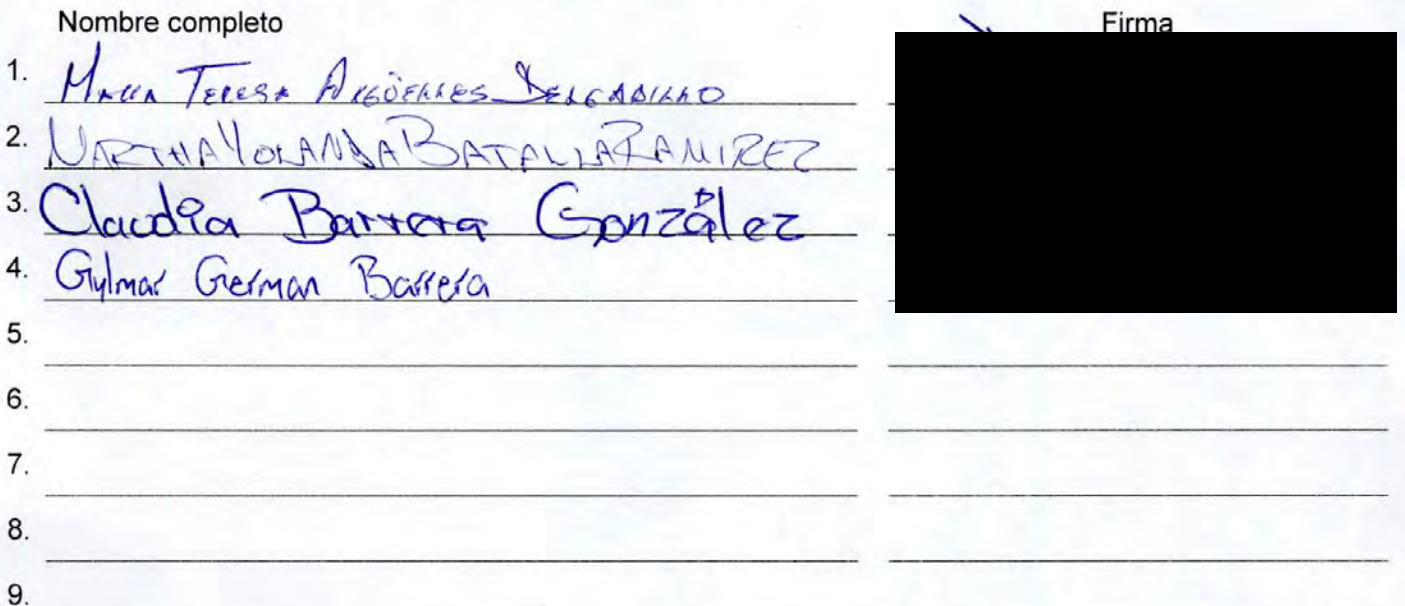 Nombre completo Firma
1. MARIA TERESA ARGÜELLES DELGADILLO
2. MARTHA YOLANDA BATALLA RAMIREZ
3. Claudia Barrera González
4. Gylmar German Barrera
5.
6.
7.
8.
9.